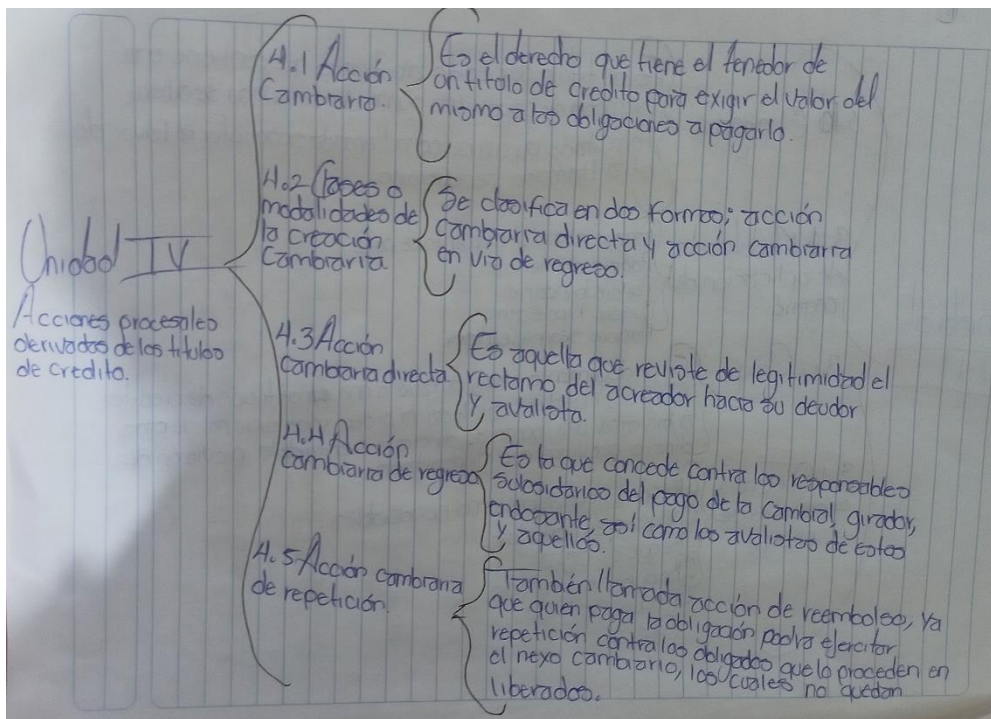 Unidad IV
Acciones procesales
derivadas de los titulos
de credito.
4.1 Acción
Cambiaria.
Es el derecho que tiene el tenedor de
un titulo de credito para exigir el valor del
mismo a los obligaciones a pagarlo.
4.2 Clases o
modalidades de
la creación
Cambiaria
Se clasifica en dos formas; acción
cambiaria directa y acción cambiaria
en via de regreso.
4.3 Acción
cambiaria directa
Es aquella que reviste de legitimidad el
reclamo del acreador hacia su deudor
y avalista.
4.4 Acción
cambiaria de regreso
Es la que concede contra los responsables
subsidarios del pago de la cambial, girador,
endosante, así como los avalistas de estos
y aquellos.
4.5 Acción cambiaria
de repetición.
También llamada acción de reembolso, ya
que quien paga la obligación podra ejercitar
repetición contra los obligados que lo proceden en
el nexo cambiario, los cuales no quedan
liberados.